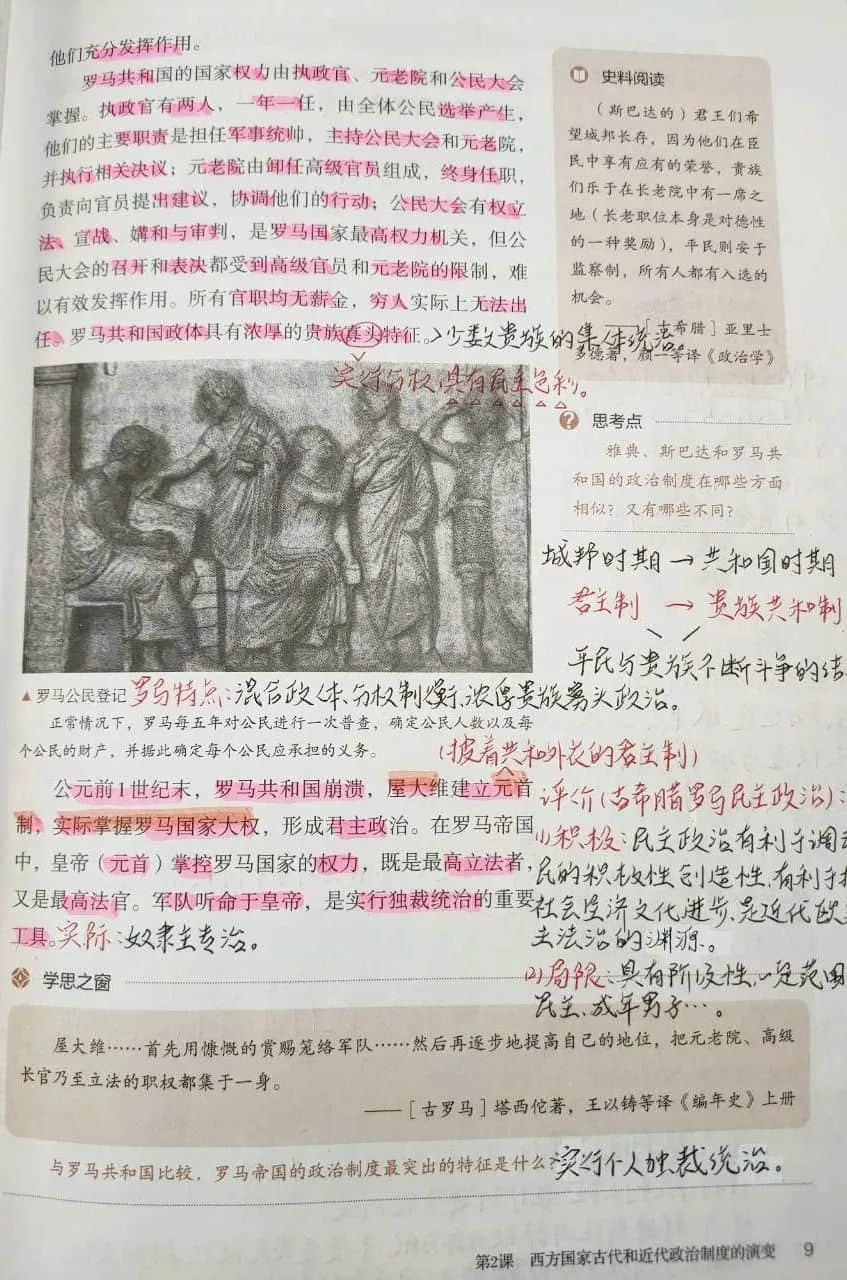 他们充分发挥作用。
罗马共和国的国家权力由执政官、元老院和公民大会
掌握。执政官有两人，一年一任，由全体公民选举产生，
他们的主要职责是担任军事统帅，主持公民大会和元老院，
并执行相关决议；元老院由卸任高级官员组成，终身任职，
负责向官员提出建议，协调他们的行动；公民大会有权立
法、宣战、媾和与审判，是罗马国家最高权力机关，但公
民大会的召开和表决都受到高级官员和元老院的限制，难
以有效发挥作用。所有官职均无薪金，穷人实际上无法出
任。罗马共和国政体具有浓厚的贵族寡头特征。
少数贵族的集体统治。
实行分权，具有民主色彩。
史料阅读
（斯巴达的）君王们希
望城邦长存，因为他们在臣
民中享有应有的荣誉，贵族
们乐于在长老院中有一席之
地（长老职位本身是对德性
的一种奖励），平民则安于
监察制，所有人都有入选的
机会。
——［古希腊］亚里士
多德著，颜一等译《政治学》
思考点
雅典、斯巴达和罗马共
和国的政治制度在哪些方面
相似？又有哪些不同？
城邦时期→共和国时期
君主制 → 贵族共和制
平民与贵族不断斗争的结
▲罗马公民登记
罗马特点：混合政体、分权制衡、浓厚贵族寡头政治。
正常情况下，罗马每五年对公民进行一次普查，确定公民人数以及每
个公民的财产，并据此确定每个公民应承担的义务。
（披着共和外衣的君主制）
公元前1世纪末，罗马共和国崩溃，屋大维建立元首
制，实际掌握罗马国家大权，形成君主政治。在罗马帝国
中，皇帝（元首）掌控罗马国家的权力，既是最高立法者，
又是最高法官。军队听命于皇帝，是实行独裁统治的重要
工具。实际：奴隶主专治。
评价（古希腊罗马民主政治）：
(1)积极：民主政治有利于调
民的积极性创造性，有利于
社会经济文化进步、是近代欧
主法治的渊源。
(2)局限：具有阶级性，一定范围
民主、成年男子…。
学思之窗
屋大维……首先用慷慨的赏赐笼络军队……然后再逐步地提高自己的地位，把元老院、高级
长官乃至立法的职权都集于一身。
——［古罗马］塔西佗著，王以铸等译《编年史》上册
与罗马共和国比较，罗马帝国的政治制度最突出的特征是什么？
实行个人独裁统治。
第2课 西方国家古代和近代政治制度的演变 9